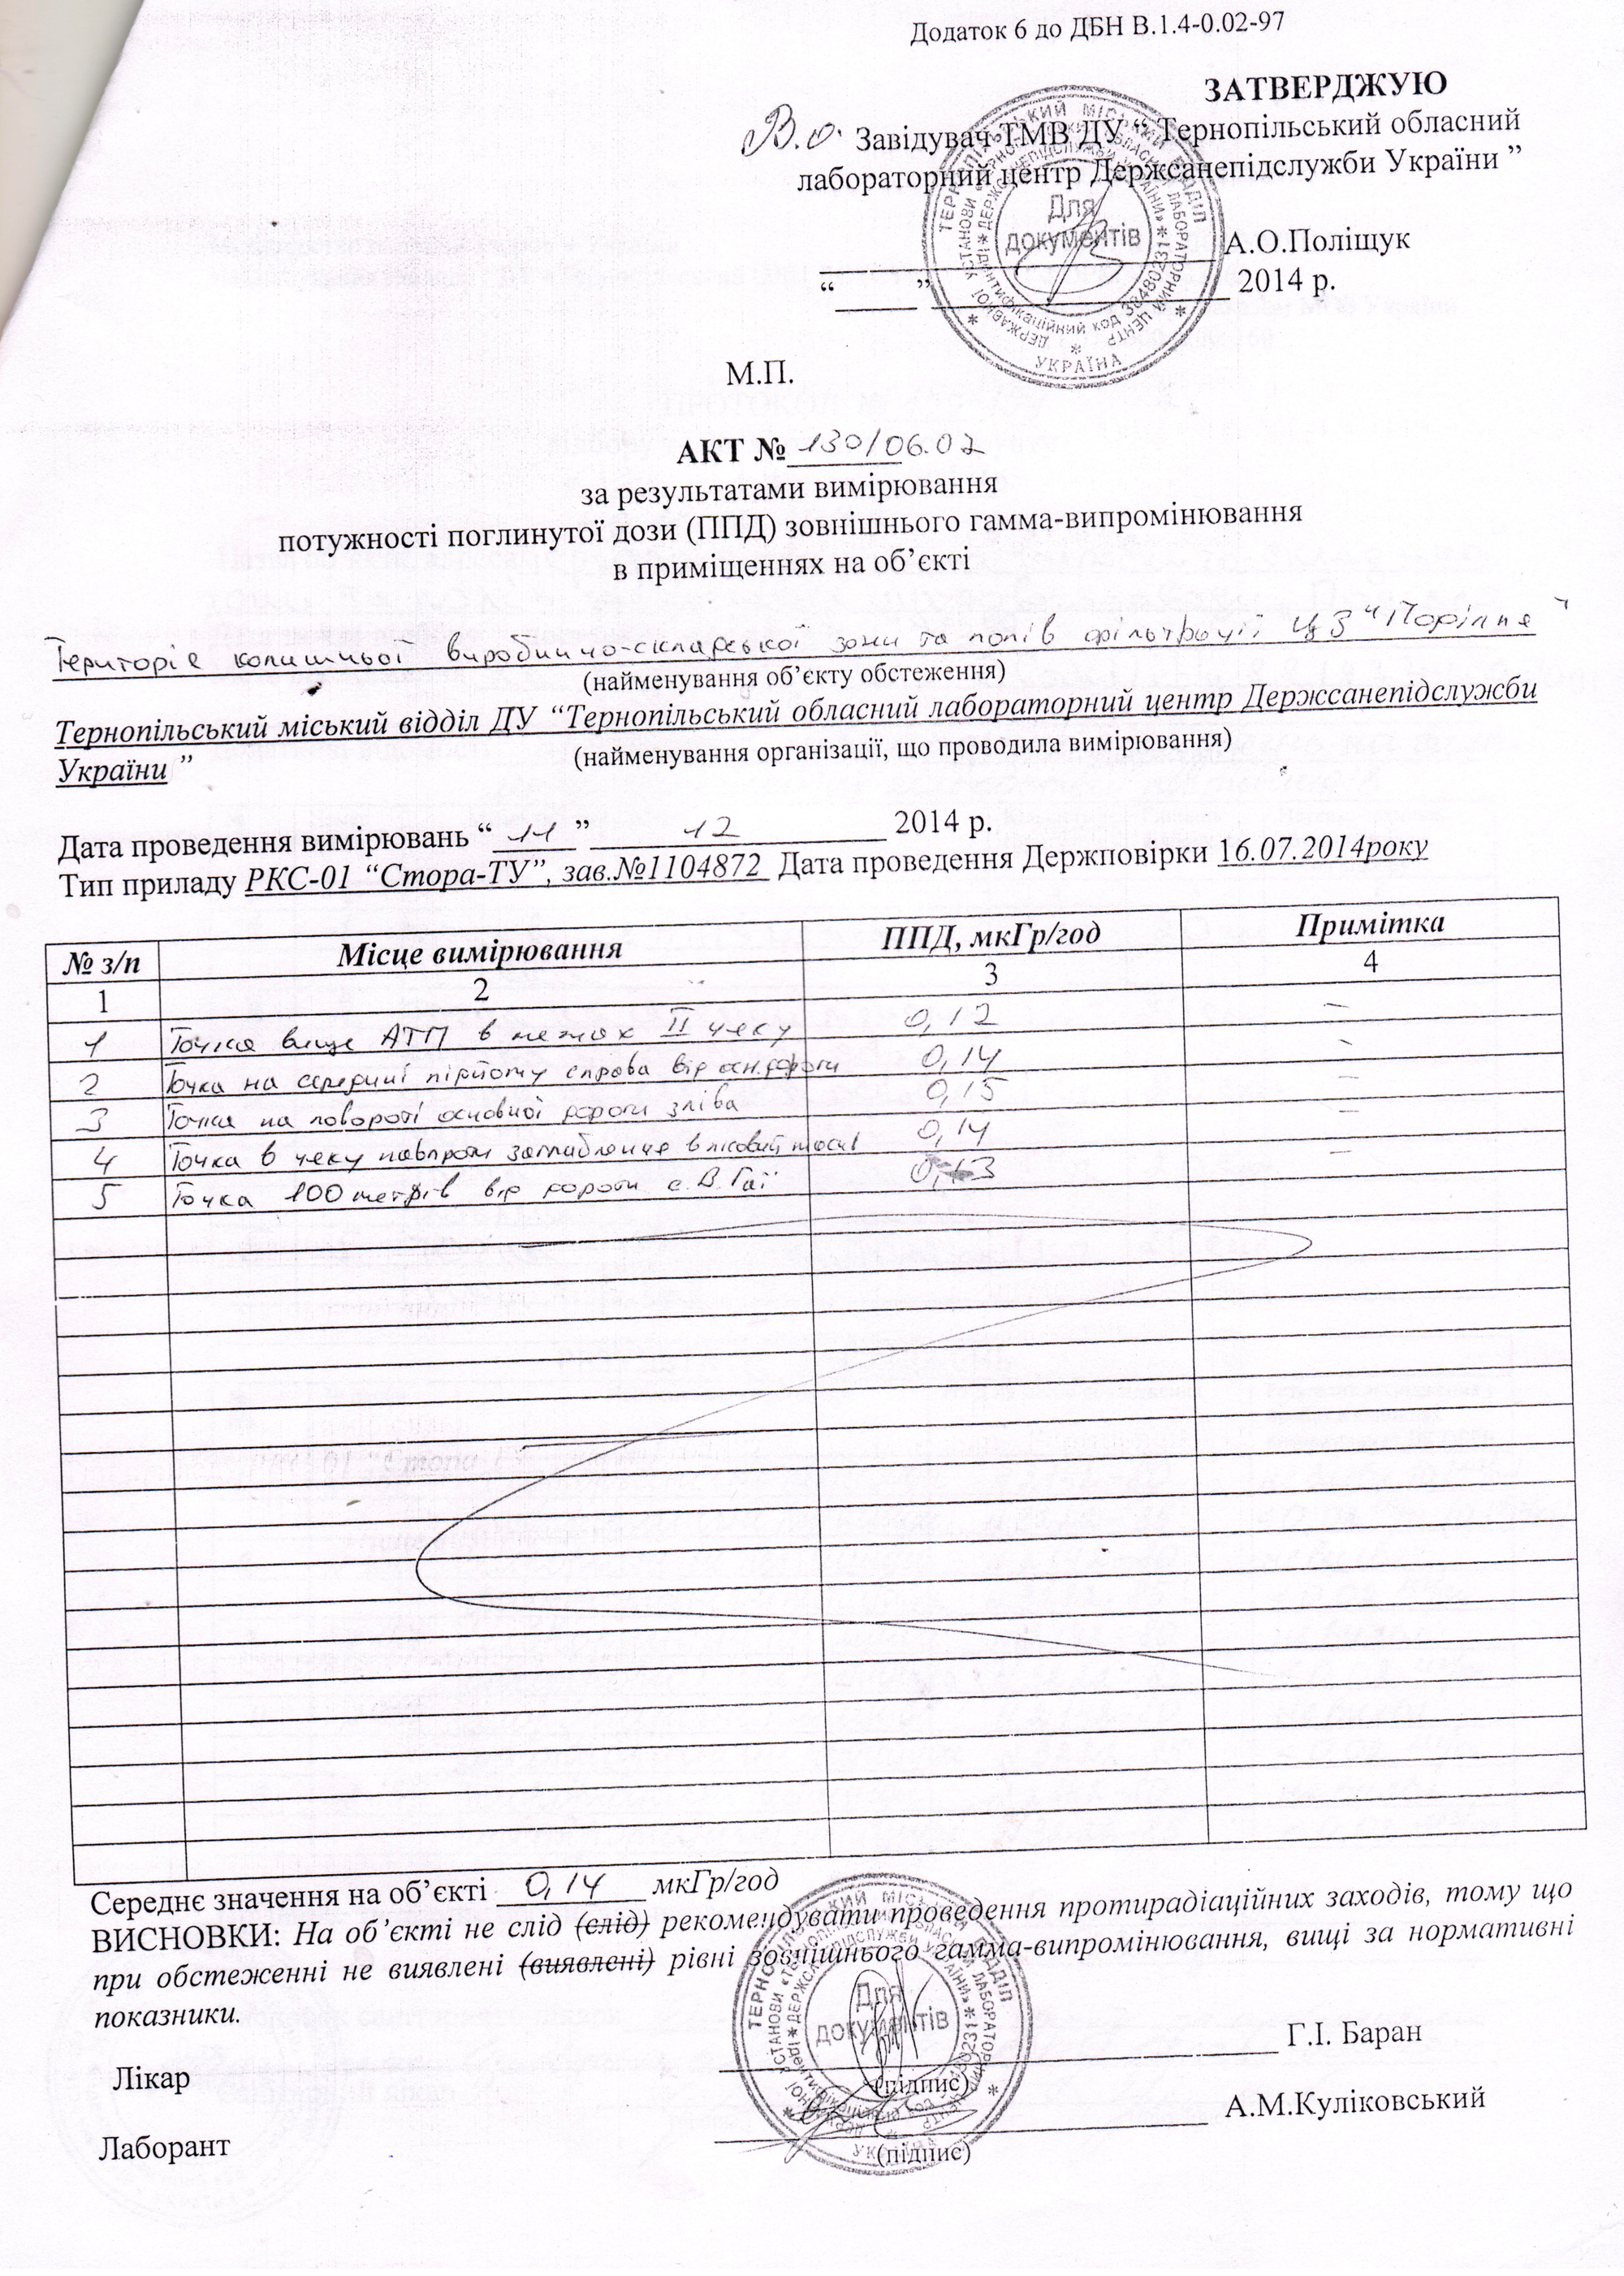 Додаток 6 до ДБН В.1.4-0.02-97
ЗАТВЕРДЖУЮ
В.о. Завідувач ТМВ ДУ “ Тернопільський обласний
лабораторний центр Держсанепідслужби України ”
А.О.Поліщук
“ ” 2014 р.
Для
документів
УКРАЇНА
М.П.
АКТ № 130/06.02
за результатами вимірювання
потужності поглинутої дози (ППД) зовнішнього гамма-випромінювання
в приміщеннях на об’єкті
Територія колишньої виробничо-складської зони та полів фільтрації ЦЗ “Поріпля”
(найменування об’єкту обстеження)
Тернопільський міський відділ ДУ “Тернопільський обласний лабораторний центр Держсанепідслужби
України ” (найменування організації, що проводила вимірювання)
Дата проведення вимірювань “ 11 ” 12 2014 р.
Тип приладу РКС-01 “Стора-ТУ”, зав.№1104872 Дата проведення Держповірки 16.07.2014року
№ з/п Місце вимірювання ППД, мкГр/год Примітка
1 2 3 4
1 Точка вище АТП в межах II чеку 0,12 –
2 Точка на середині підйому справа від осн.дороги 0,14 –
3 Точка на повороті основної дороги зліва 0,15 –
4 Точка в чеку навпроти заглиблення в лісовий масив 0,14 –
5 Точка 100 метрів від дороги с.В.Гаї 0,13 –
Середнє значення на об’єкті 0,14 мкГр/год
ВИСНОВКИ: На об’єкті не слід (слід) рекомендувати проведення протирадіаційних заходів, тому що
при обстеженні не виявлені (виявлені) рівні зовнішнього гамма-випромінювання, вищі за нормативні
показники.
Для
документів
Лікар Г.І. Баран
(підпис)
Лаборант А.М.Куліковський
(підпис)
УКРАЇНА